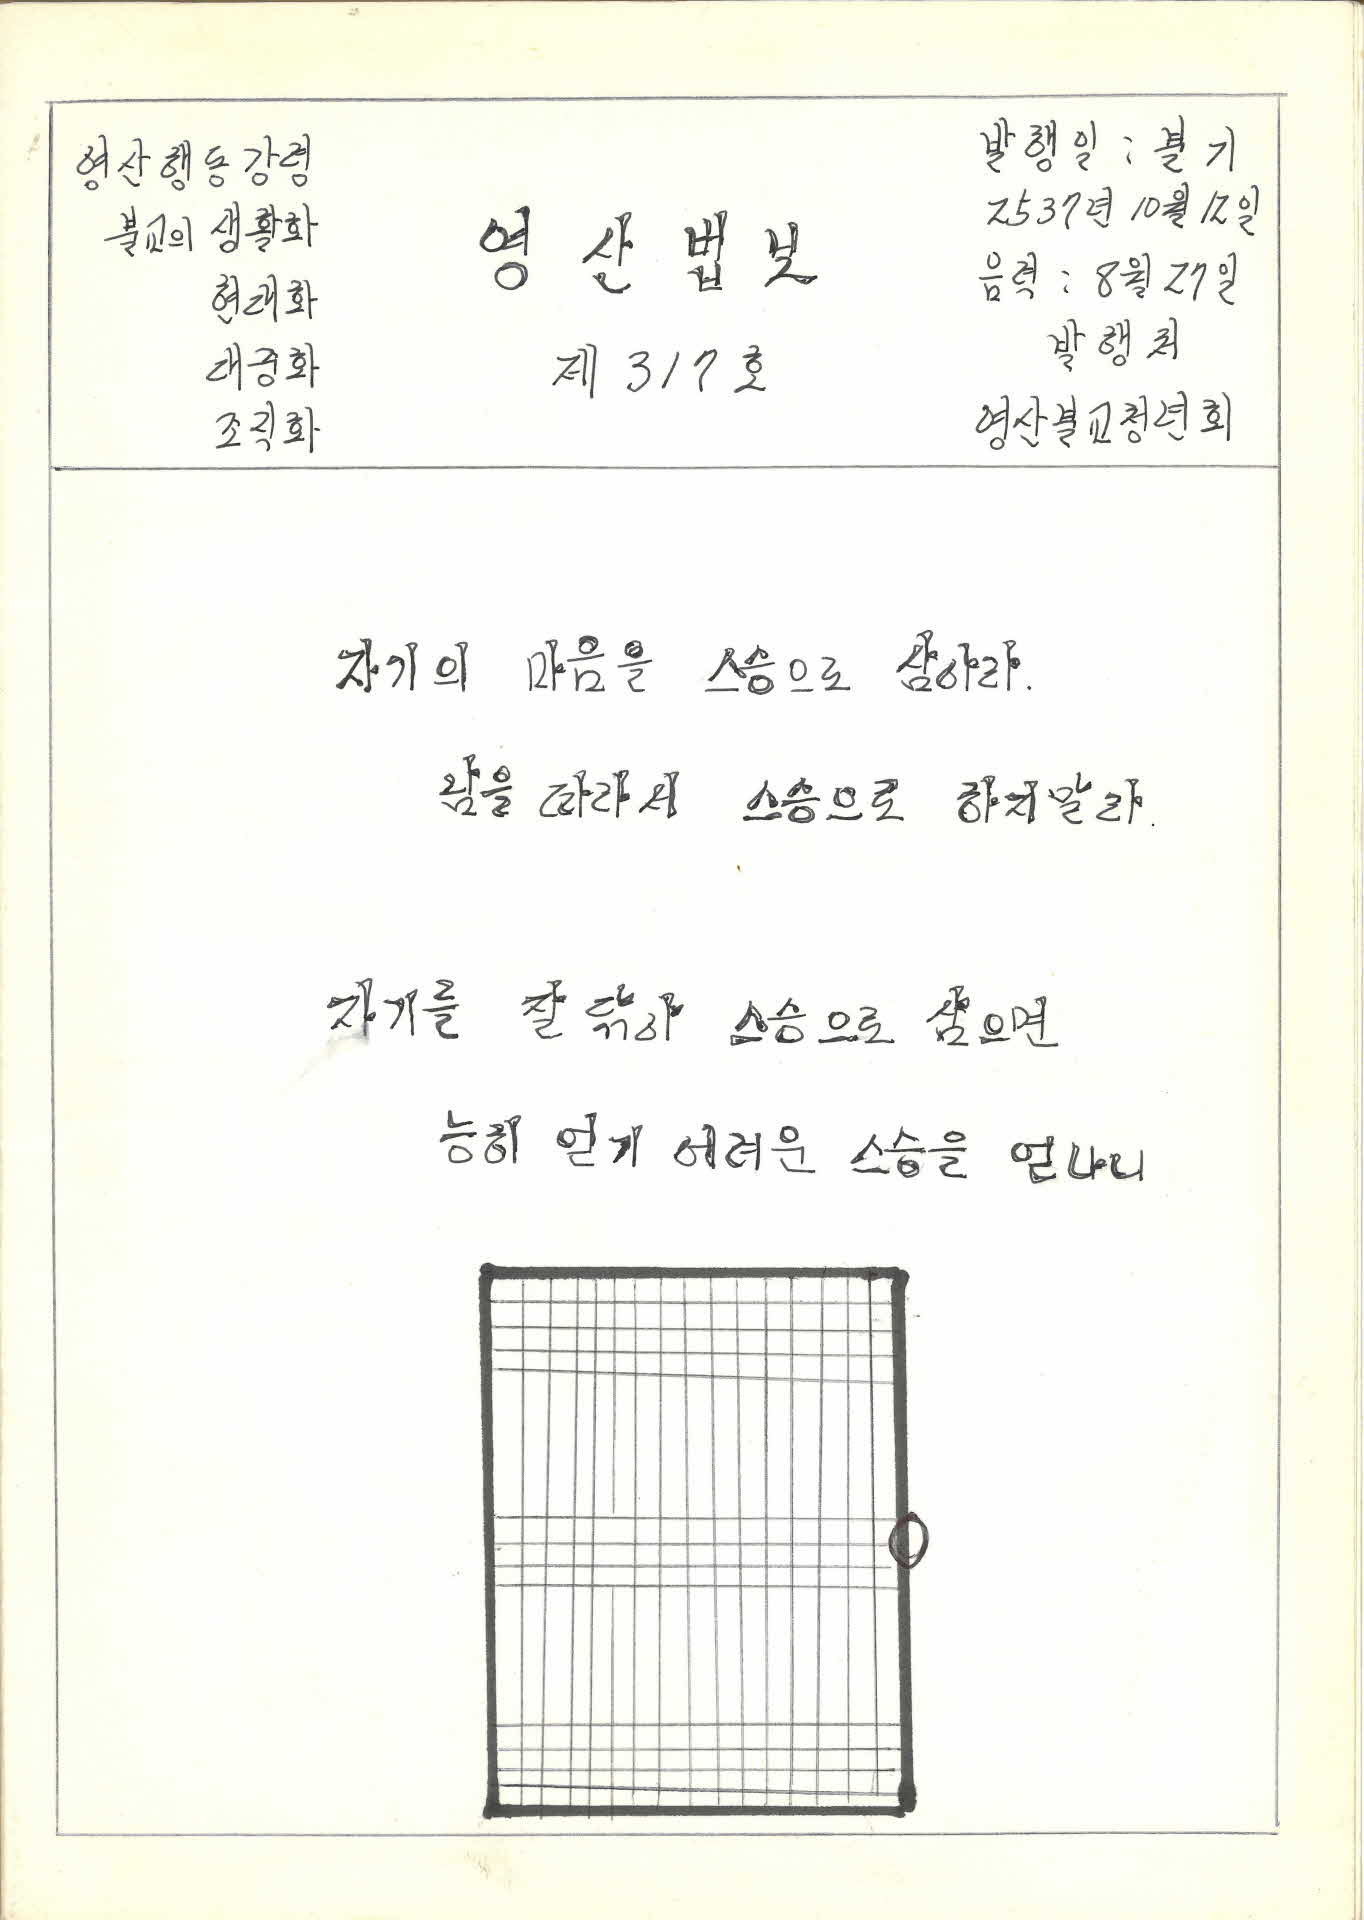 영산행동강령
불교의 생활화
현대화
대중화
조직화
영산법보
제 317호
발행일 : 불기
2537년 10월 12일
음력 : 8월 27일
발행처
영산불교청년회
자기의 마음을 스승으로 삼아라.
남을 따라서 스승으로 하지말라.
자기를 잘 닦아 스승으로 삼으면
능히 얻기 어려운 스승을 얻나니